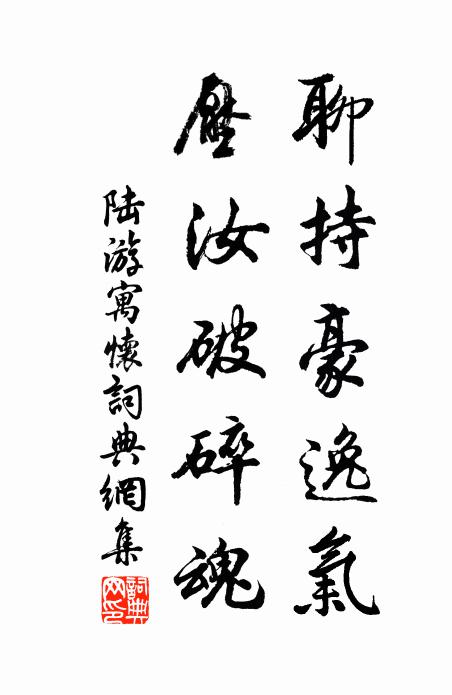 聊持豪逸氣
壓汝破碎魂
陸游寓懷詞典網集
詞典網印